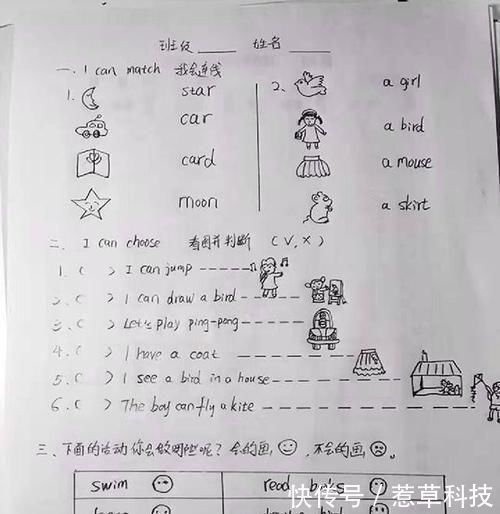 班级 姓名
一、I can match 我会连线
1. star 2、 a girl
car a bird
card a mouse
moon a skirt
二、I can choose 看图并判断 (√,×)
1. ( ) I can jump
2. ( ) I can draw a bird
3. ( ) Let's play ping-pong
4. ( ) I have a coat
5. ( ) I see a bird in a house
6. ( ) The boy can fly a kite
三、下面的活动你会做哪些呢? 会的画, 不会的画
swim read books
快传号 / 惹草科技